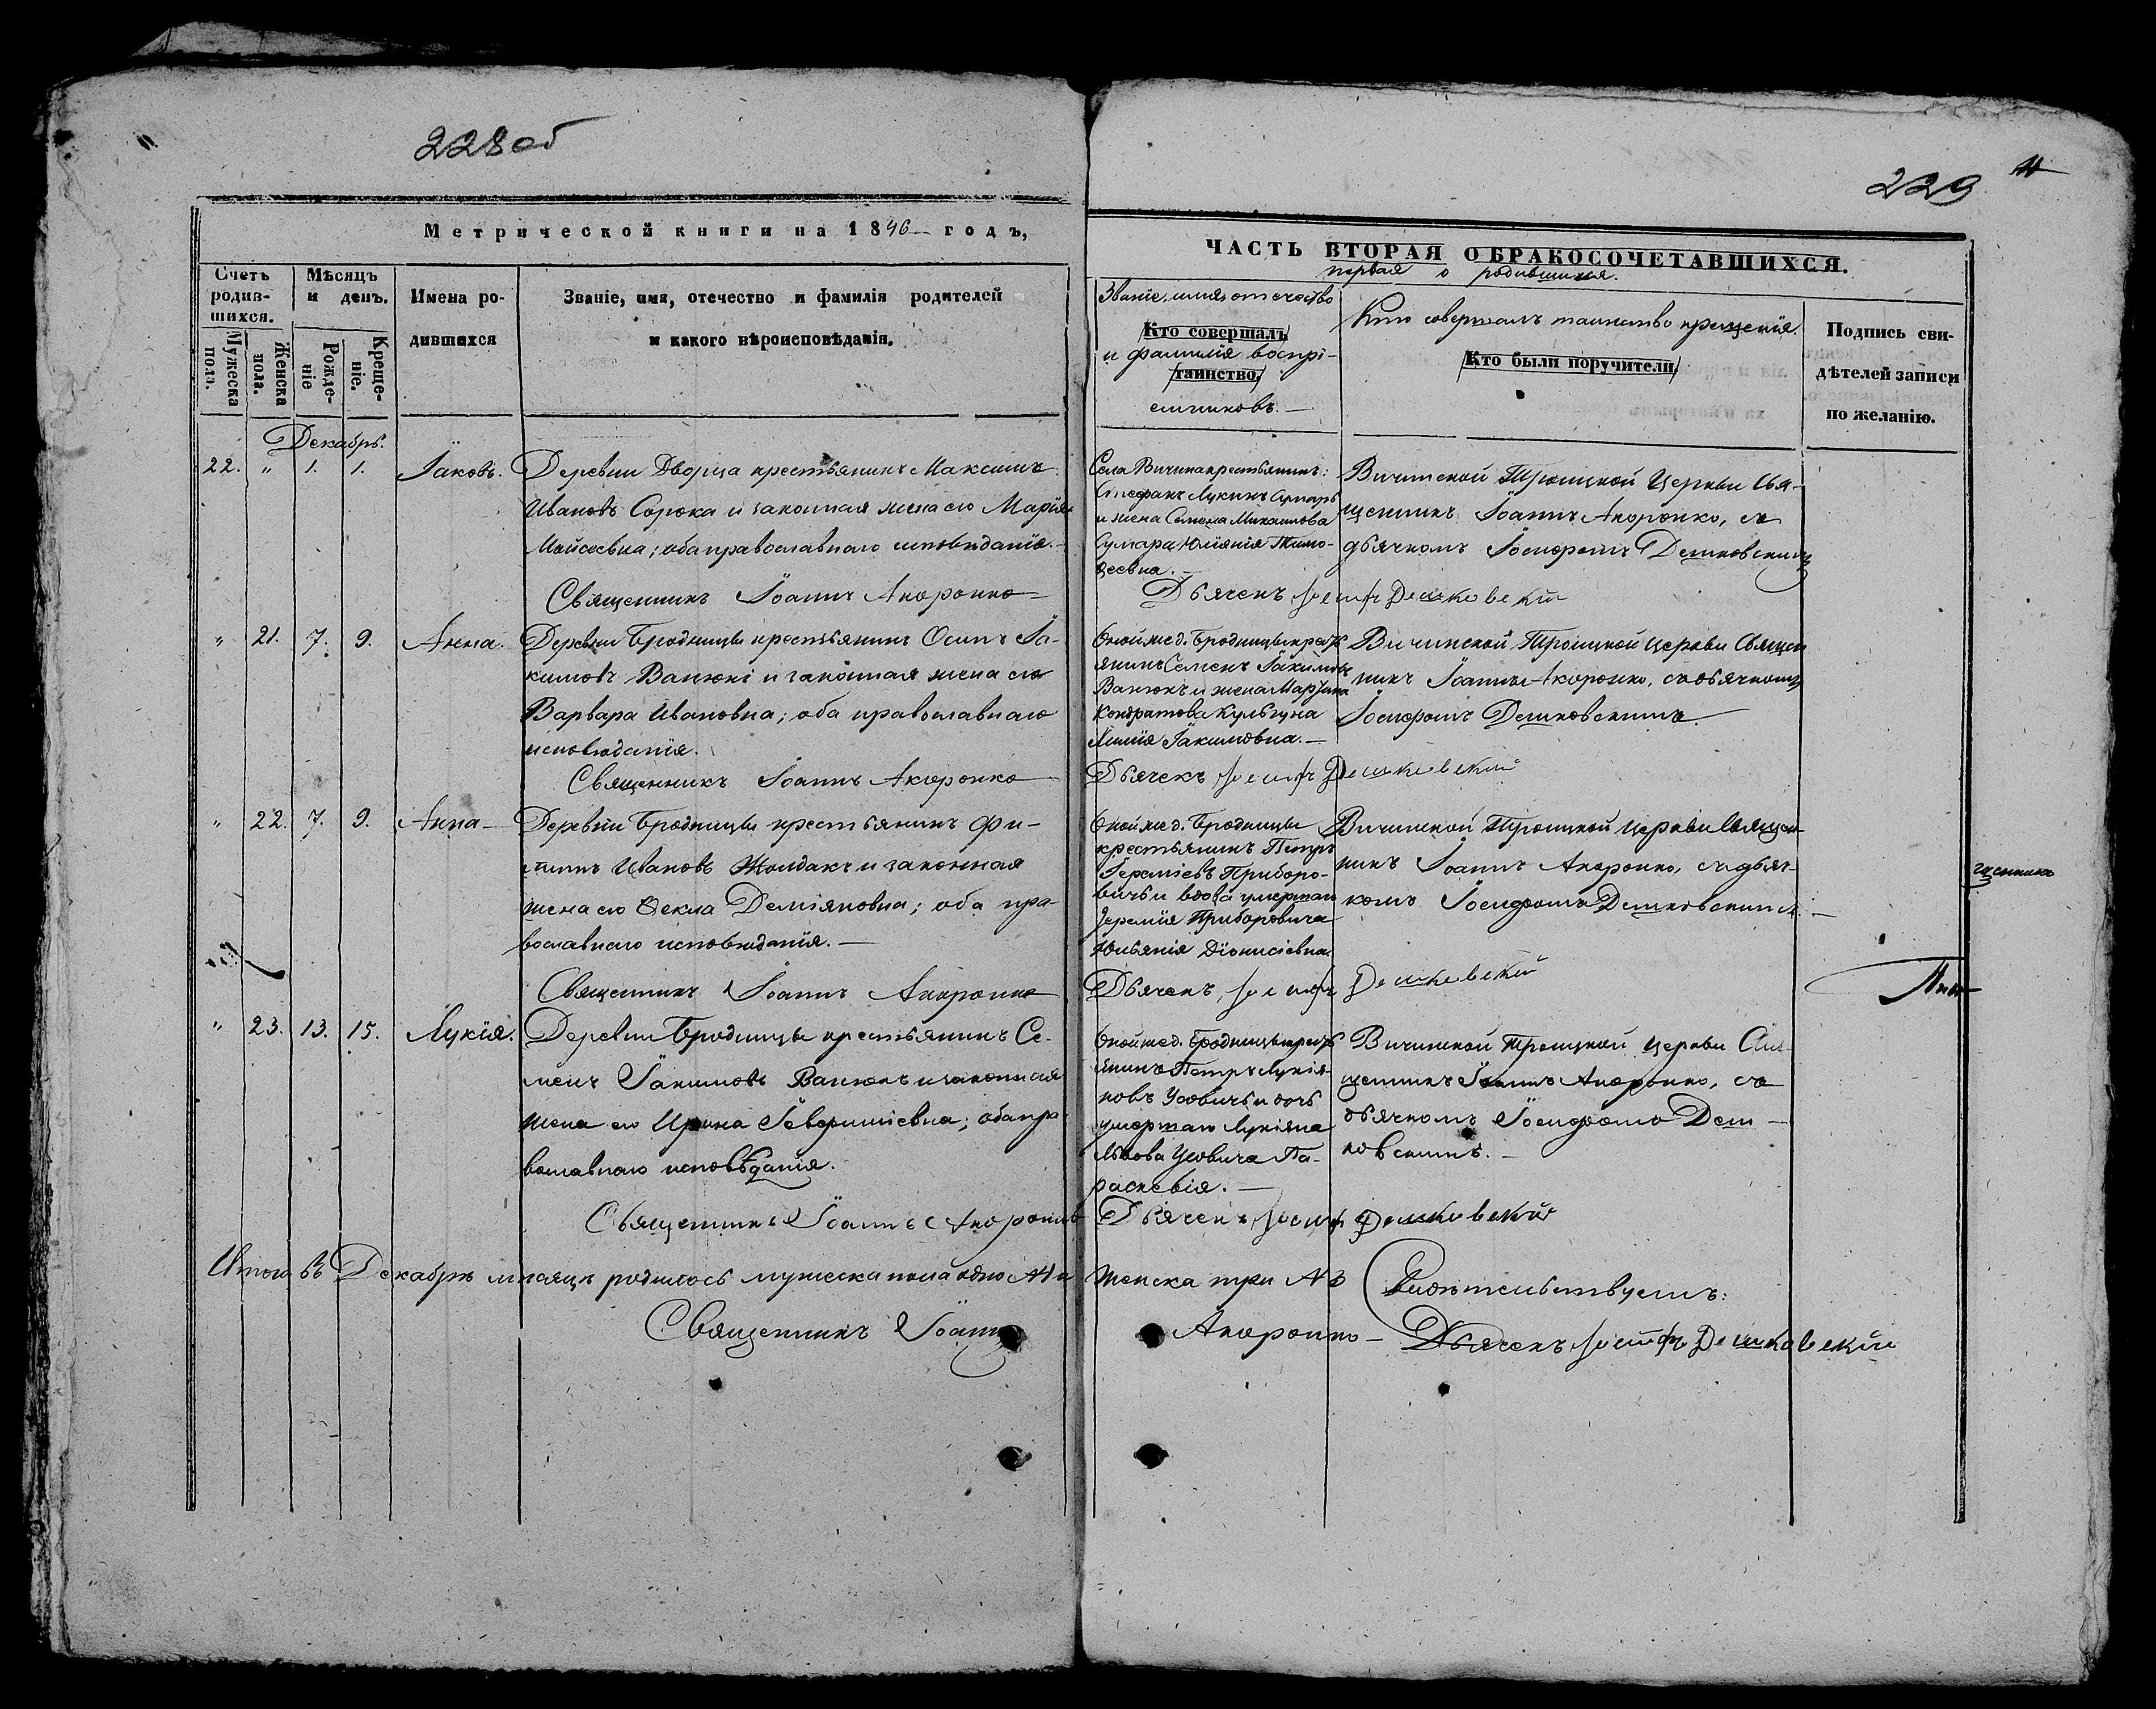 228 об
229
Метрической книги на 1846 годъ,
ЧАСТЬ ВТОРАЯ О БРАКОСОЧЕТАВШИХСЯ.
первая о родившихся.
Счетъ родив-
шихся.
Мужеска пола.
Женска пола.
Мѣсяцъ и день.
Рожде-
ніе
Креще-
ніе.
Имена ро-
дившихся
Званіе, имя, отечество и фамилія родителей
и какого вѣроисповѣданія.
Званіе, имя, отечество
Кто совершалъ
и фамилія воспрі-
таинство.
емниковъ.
Кто совершалъ таинство крещенія.
Кто были поручители
Подпись сви-
дѣтелей записи
по желанію.
Декабрь.
22. " 1. 1. Іаковъ.
Деревни Дворца крестьянинъ Максимъ
Ивановъ Сорока и законная жена его Марія
Мойсеевна; оба православнаго исповѣданія.
Священникъ Іоаннъ Акоронко
Села Вичина крестьянинъ:
Стефанъ Лукинъ Сумаръ
и жена Семена Михайлова
Сумара Юліянія Тимо-
ѳеевна.
Вичинской Троицкой Церкви Свя-
щенникъ Іоаннъ Акоронко, съ
дьячкомъ Іосифомъ Дешковскимъ
Дьячекъ Іосифъ Дешковскій
" 21. 7. 9. Анна.
Деревни Бродницы крестьянинъ Осипъ Іа-
кимовъ Ванюкъ и законная жена его
Варвара Ивановна; оба православнаго
исповѣданія.
Священникъ Іоаннъ Акоронко
Оной же д. Бродницы крестъ
янинъ Семенъ Іакимовъ
Ванюкъ и жена
Кондратова Кульгуна
Іакимовна.
Вичинской Троицкой Церкви Священ
никъ Іоаннъ Акоронко, съ дьячкомъ
Іосифомъ Дешковскимъ.
Дьячекъ Іосифъ Дешковскій
" 22. 7. 9. Анна
Деревни Бродницы крестьянинъ Фи-
липъ Ивановъ Жолдакъ и законная
жена его Ѳекла Деміяновна; оба пра-
вославнаго исповѣданія.
Священникъ Іоаннъ Акоронко
Оной же д. Бродницы
крестьянинъ Петръ
Іереміевъ Приборо-
вичъ и вдова умершаго
Іереміи Приборовича
Юльянія Діонисіевна.
Вичинской Троицкой Церкви Священ-
никъ Іоаннъ Акоронко, съ дьяч-
комъ Іосифомъ Дешковскимъ.
Дьячекъ Іосифъ Дешковскій
щенникъ
" 23. 13. 15. Лукія.
Деревни Бродницы крестьянинъ Се-
менъ Іакимовъ Ванюкъ и законная
жена его Ирина Севериніевна; оба пра-
вославнаго исповѣданія.
Священникъ Іоаннъ Акоронко
Оной же д. Бродницы крестъ
янинъ Петръ Лукія-
новъ Усовичъ и дочь
умершаго Лукіяна
Львова Усовича Па-
раскевія.
Вичинской Троицкой Церкви Свя-
щенникъ Іоаннъ Акоронко, съ
дьячкомъ Іосифомъ Деш-
ковскимъ.
Дьячекъ Іосифъ Дешковскій
Итого въ Декабрѣ мѣсяцѣ родилось мужеска пола одно №1 и женска три №3
Свидѣтельствуемъ:
Священникъ Іоаннъ Акоронко
Дьячекъ Іосифъ Дешковскій